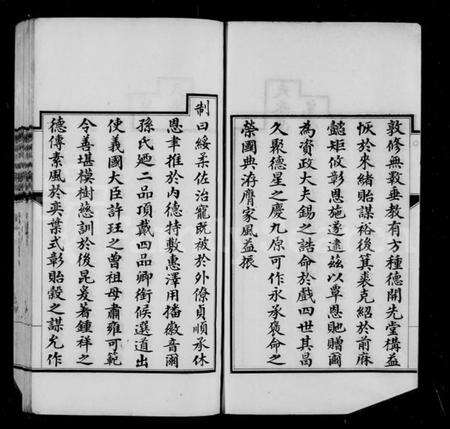 敦修無斁垂教有方種德開先堂構益
恢於來緒貽謀裕後箕裘克紹於前庥
懿矩攸彰恩施遂逮茲以覃恩貤贈爾
為資政大夫錫之誥命於戲四世其昌
久聚德星之慶九原可作永承褒命之
榮國典洊膺家風益振
制曰綏柔佐治寵既被於外僚貞順承休
恩聿推於內德特敷惠澤用播徽音爾
孫氏廼二品頂戴四品卿銜候選道出
使義國大臣許珏之曾祖母肅雍可範
令善堪模樹慈訓於後昆爰著鍾祥之
德傳素風於奕葉式彰貽穀之謀允作